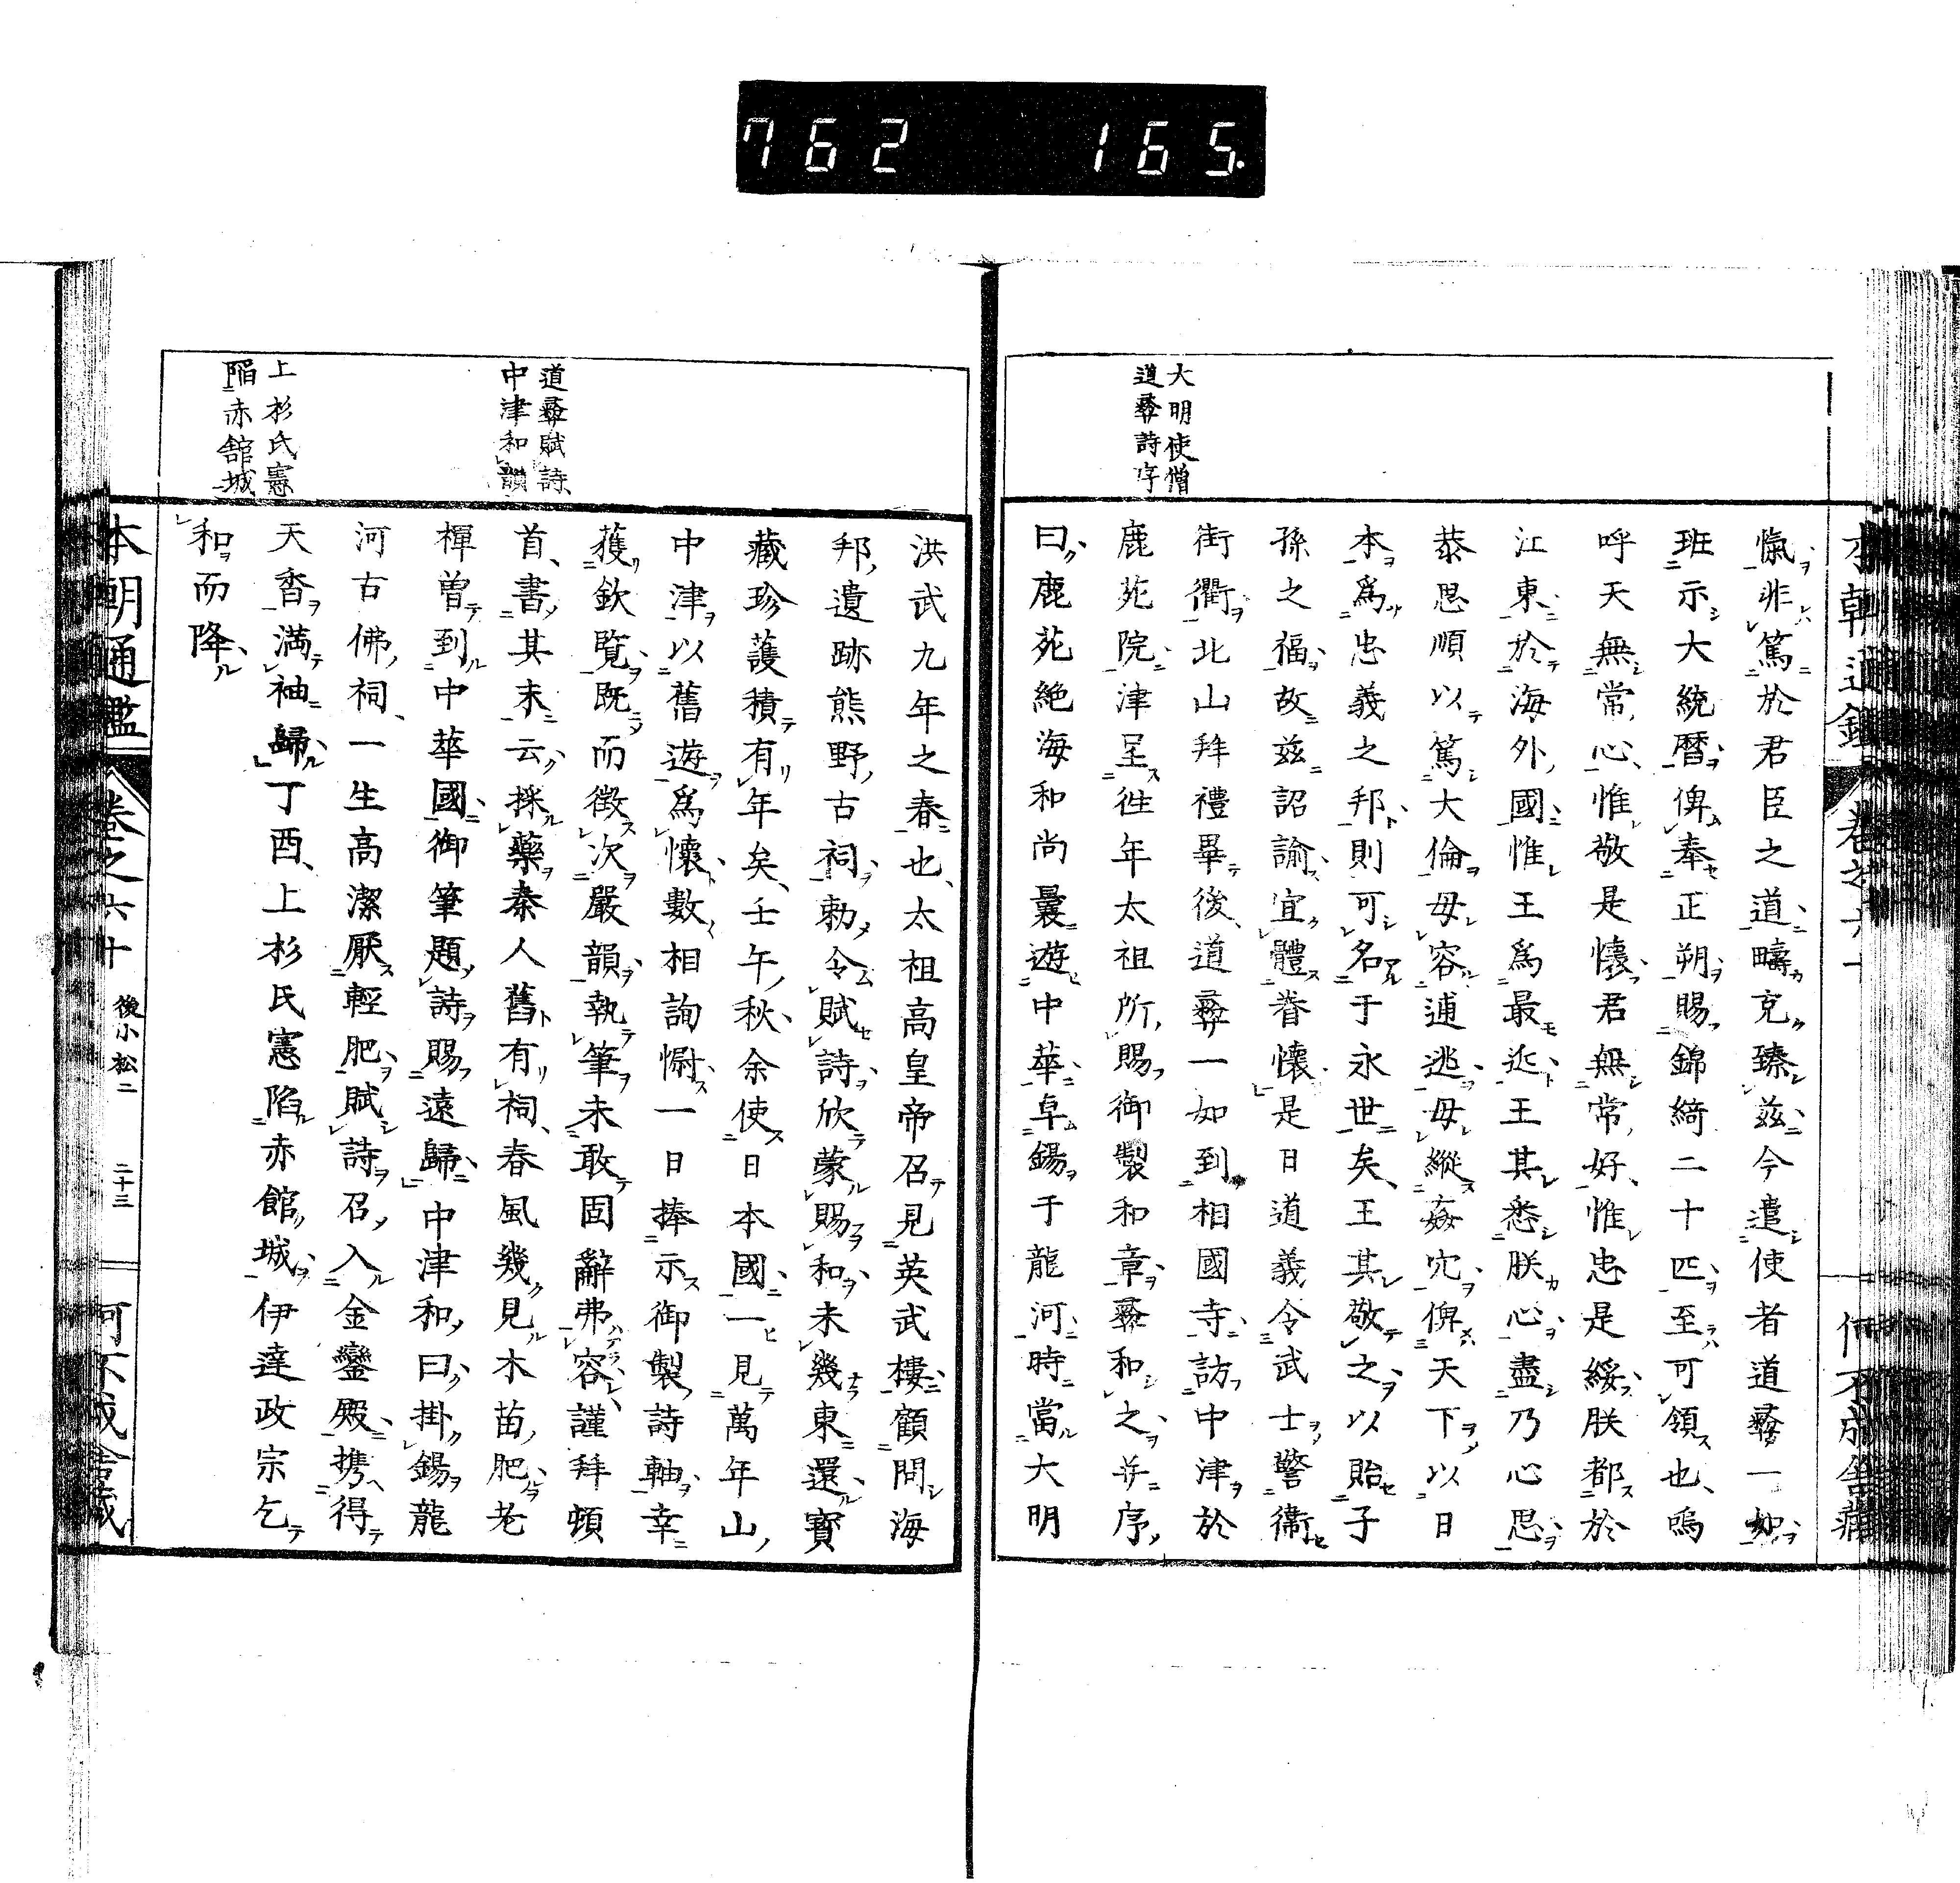 762 165.
大明使僧
道彝詩序
愾非篤於君臣之道疇克臻茲今遣使者道彝一如
班示大統曆俾奉正朔賜錦綺二十匹至可領也嗚
呼天無常心惟敬是懷君無常好惟忠是綏朕都於
江東於海外國惟王為最近王其悉朕心盡乃心思
恭思順以篤大倫毋容逋逃毋縱姦宄俾天下以日
本為忠義之邦則可名于永世矣王其敬之以貽子
孫之福故茲詔諭宜體眷懷是日道義令武士警衞
街衢北山拜禮畢後道彝一如到相國寺訪中津於
鹿苑院津呈徃年太祖所賜御製和章彝和之并序
曰鹿苑絶海和尚曩遊中華卓錫于龍河時當大明
道彝賦詩
中津和韻
上杉氏憲
陷赤舘城
洪武九年之春也太祖高皇帝召見英武樓顧問海
邦遺跡熊野古祠勅令賦詩欣蒙賜和未幾東還寳
藏珍護積有年矣壬午秋余使日本國一見萬年山
中津以舊遊為懷數相詢慰一日捧示御製詩軸幸
獲欽覧既而徴次嚴韻執筆未敢固辭弗容謹拜頓
首書其末云採藥秦人舊有祠春風幾見木苗肥老
禪曽到中華國御筆題詩賜遠歸中津和曰掛錫龍
河古佛祠一生高潔厭輕肥賦詩召入金鑾殿携得
天香満袖歸丁酉上杉氏憲陷赤館城伊達政宗乞
和而降
本朝通鑑 卷之六十 後小松二 二十三